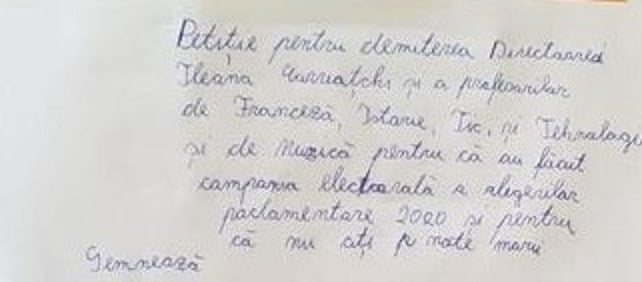 Petiție pentru demiterea Directoarei
Ileana și a profesorilor
de Franceză, Istorie, Tic, și Tehnologi
și de Muzică pentru că au făcut
campania electoarată a alegerilor
parlamentare 2020 și pentru
că nu note mari
Semnează